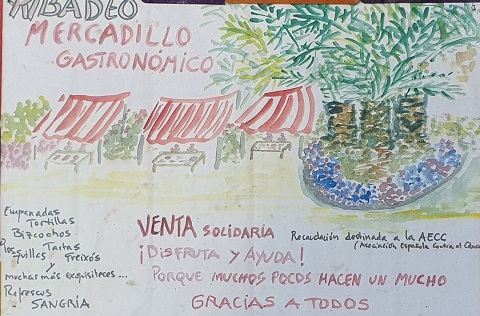 RIBADEO
MERCADILLO
GASTRONÓMICO
Empanadas
Tortillas
Bizcochos
Tartas
Filloas Freixós
y
muchas más exquisiteces...
Refrescos
SANGRÍA
VENTA SOLIDARIA
¡DISFRUTA Y AYUDA!
PORQUE MUCHOS POCOS HACEN UN MUCHO
GRACIAS A TODOS
Recaudación destinada a la AECC
(Asociación Española contra el